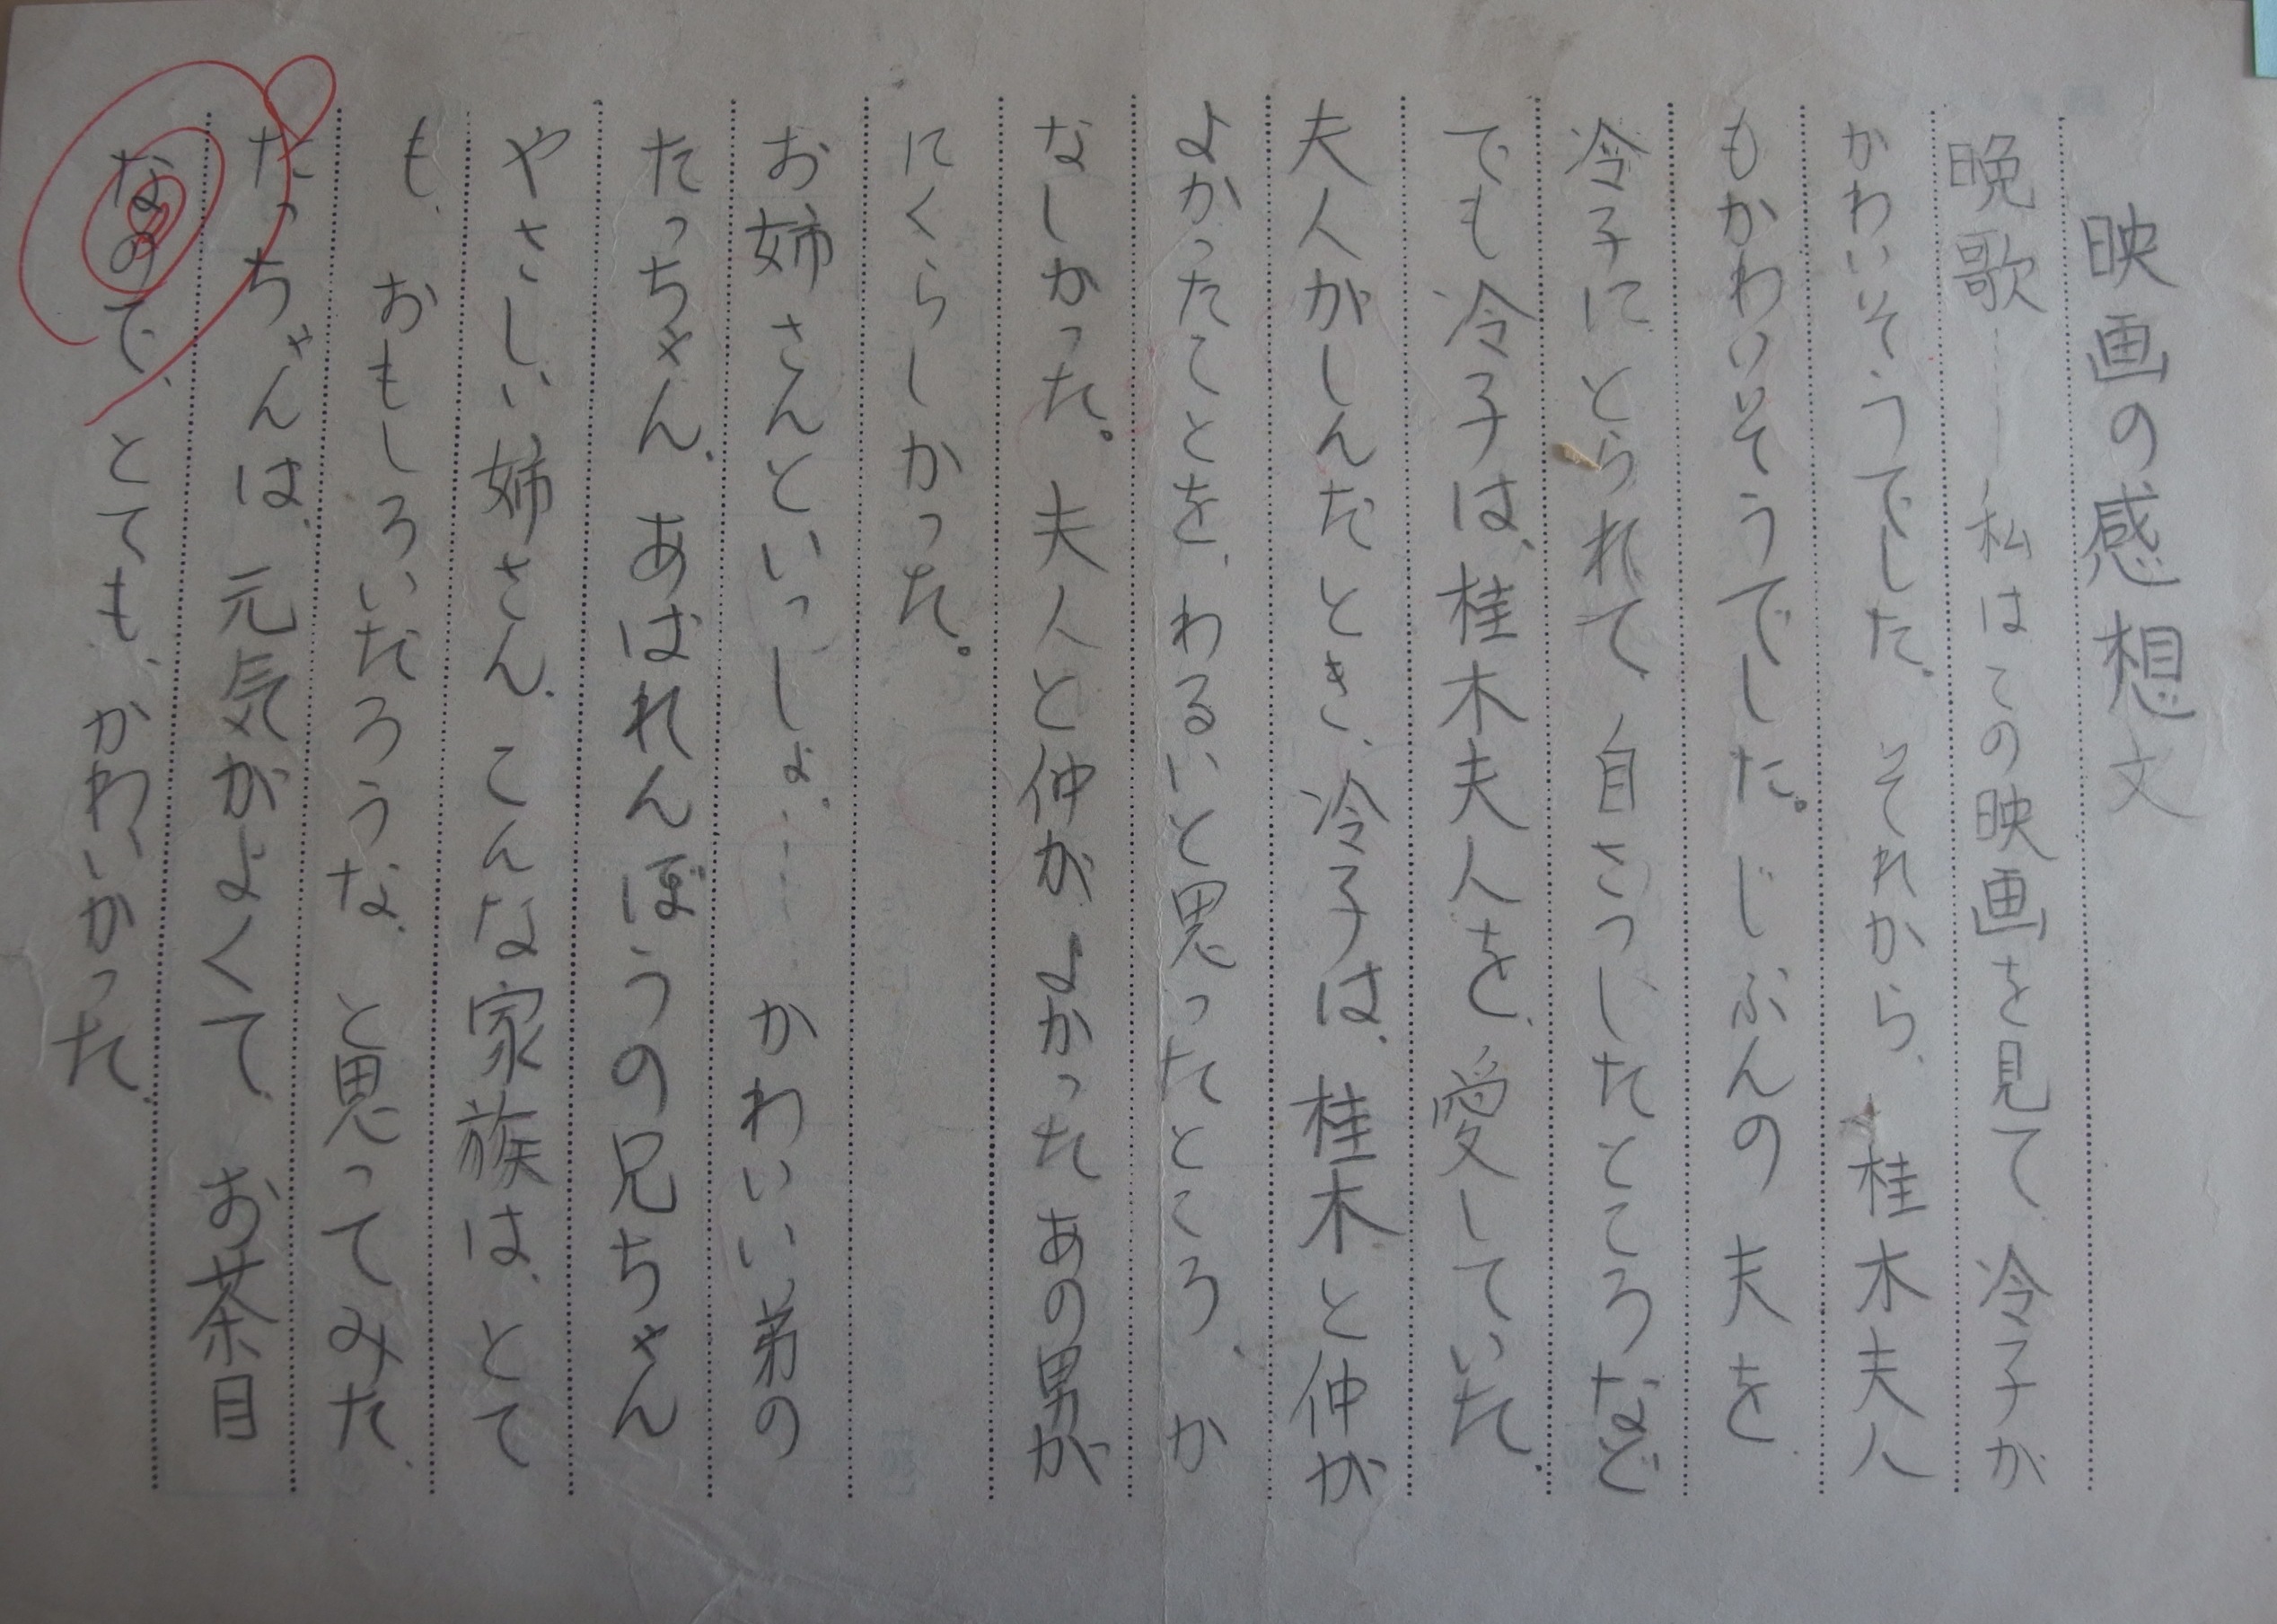 映画の感想文
晩歌………私はこの映画を見て、冷子が
かわいそうでした。それから、桂木夫人
もかわいそうでした。じぶんの夫を、
冷子にとられて、自さつしたところなど
でも冷子は、桂木夫人を、愛していた。
夫人がしんだとき、冷子は、桂木と仲が
よかったことを、わるいと思ったところ、か
なしかった。夫人と仲がよかったあの男が
にくらしかった。
お姉さんといっしょ……かわいい弟の
たっちゃん、あばれんぼうの兄ちゃん
やさしい姉さん、こんな家族は、とて
も、おもしろいだろうな、と思ってみた、
たっちゃんは、元気がよくて、お茶目
なので、とても、かわいかった、